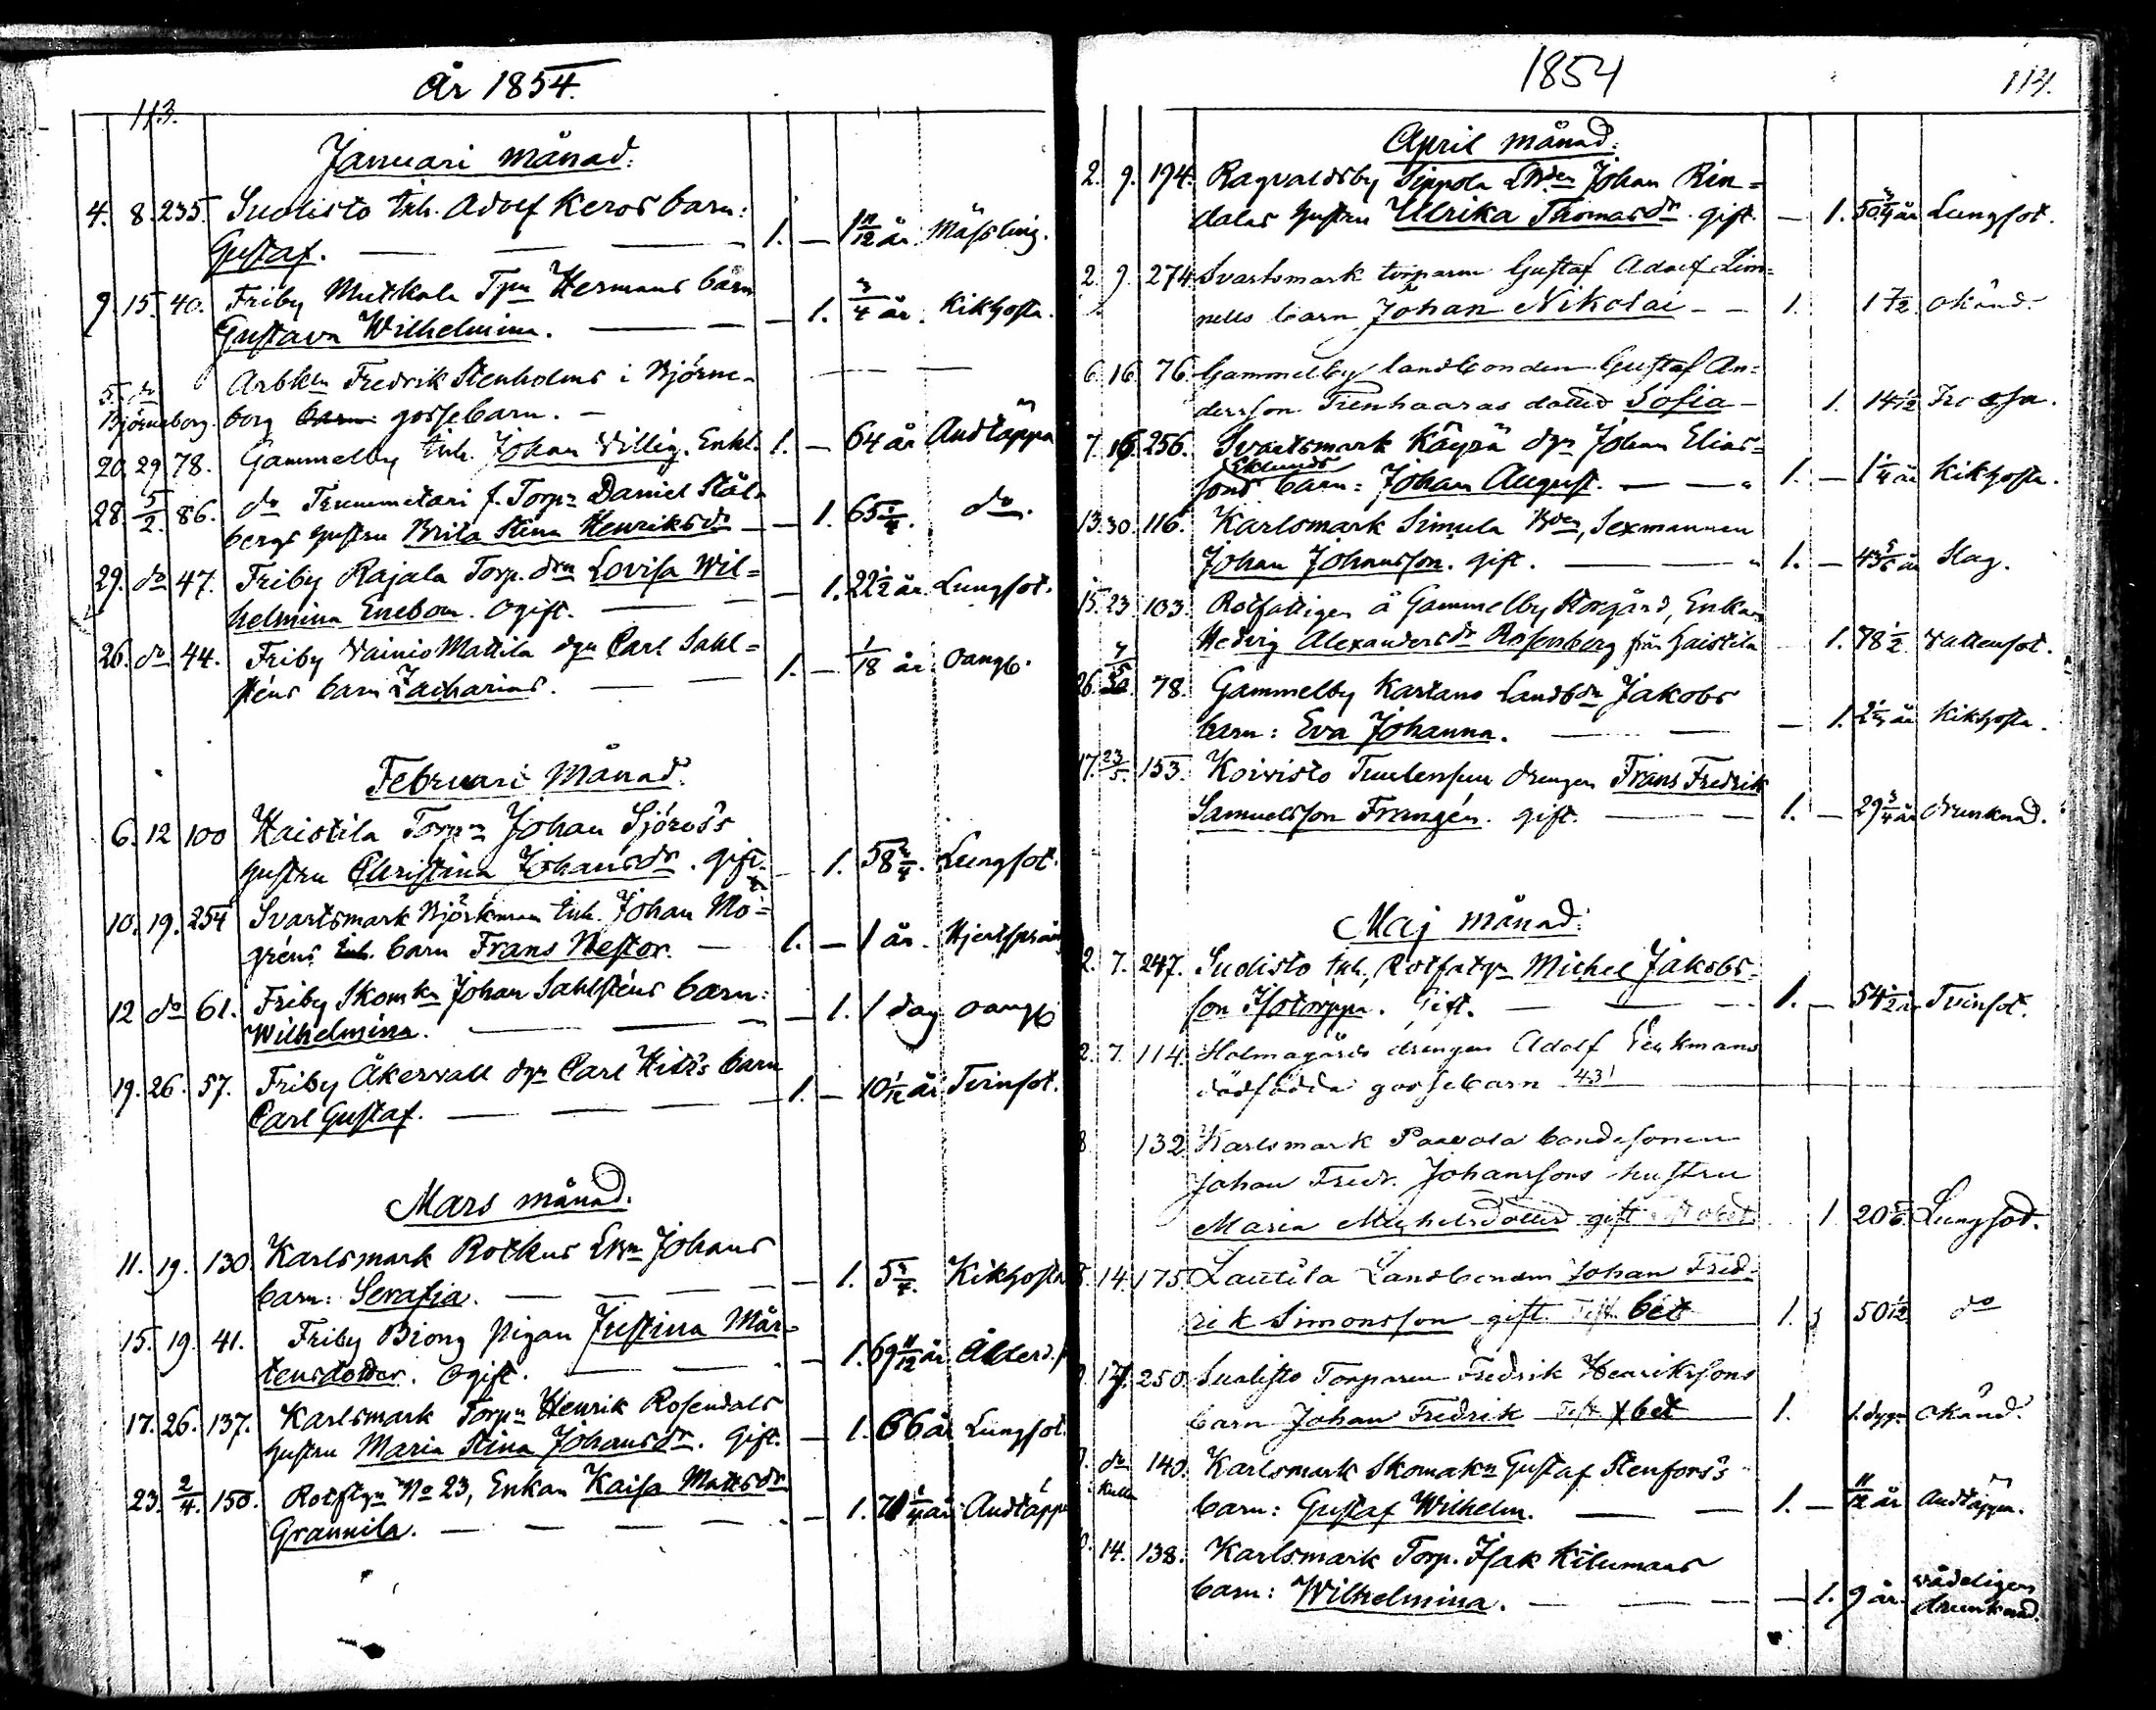 113.
År 1854.
Januari månad.
4. 8. 235. Suolisto Inh. Adolf Keros barn:
Gustaf. 1. — 1 11/12 år. Mässling.
9. 15. 40. Friby Mutkala Tpn Hermans barn
Gustava Wilhelmina. — 1. 3/4 år. Kikhosta.
5. do Arbkln Fredrik Stenholms i Björne-
Björneborg. borg barn gossebarn. —
20. 29 78. Gammelby Inh. Johan Villig. Enkl. 1. — 64 år Andtäppa
28. 5/2. 86. do Trummetari f. Torpn Daniel Stål-
bergs hustru Brita Stina Henriksdr — 1. 65 1/4. do.
29. do 47. Friby Rajala Torp. drn Lovisa Wil=
helmina Enebom. Ogift. — 1. 22 1/2 år. Lungsot.
26. do 44. Friby Vainio Mattila dgn Carl Sahl=
sténs barn Zacharias. 1. — 1/18 år oangb.
Februari Månad.
6. 12 100 Haistila Torpn Johan Sjöros's
hustru Christina Johansdr. gift. — 1. 58 3/4. Lungsot.
10. 19. 254 Svartsmark Björkman Inh. Johan Mo=
gréns Inh. barn Frans Nestor. — 1. — 1 år. Hjertsprång
12 do 61. Friby Skomkn Johan Sahlsténs barn:
Wilhelmina. — 1. 1 dag oangb
19. 26. 57. Friby Åkervall dgn Carl Hitz's barn
Carl Gustaf. 1. — 10 1/12 år Tvinsot.
Mars månad.
11. 19. 130 Karlsmark Rotkus LBn Johans
barn: Serafia. — 1. 5 3/4. Kikhosta
15. 19. 41. Friby Biong pigan Justina Mår-
tensdotter. Ogift. — 1. 69 11/12 år Ålderd.
17. 26. 137. Karlsmark Torpn Henrik Rosendals
hustru Maria Stina Johansdr. Gift. — 1. 66 år Lungsot.
23. 2/4. 150. Rotftgn No 23, Enkan Kaisa Mattsdr
Grannila. — 1. 71 1/4 år Andtäppa
1854
114.
April månad.
2. 9. 194. Ragvaldsby Sippola LBden Johan Rin=
dalas hustru Ulrika Thomasdr. gift. — 1. 50 3/4 år Lungsot.
2. 9. 274 Svartsmark torparen Gustaf Adolf Lim=
nells barn Johan Nikolai — 1. 1 7/12 okänd.
6. 16. 76. Gammelby landbonden Gustaf An=
dersson Tienhaaras dotter Sofia — 1. 14 1/2 Trossa.
7. 16. 256. Svartsmark Käyrä dgn Johan Elias=
Eklunds
sons barn: Johan August. — 1. — 1 1/4 år Kikhosta.
13. 30. 116. Karlsmark Simula Bden, Sexmannen
Johan Johansson. gift. — 1. — 43 5/6 år Slag.
15. 23. 103. Rotfattigen å Gammelby Storgård, Enkan
Hedvig Alexandersdr Rosenberg från Haistila 1. 78 1/2. Vattensot.
26. 7/5 30. 78. Gammelby Kartano Landbdn Jakobs
barn: Eva Johanna. — 1. 2 1/4 år Kikhosta.
17. 23/5. 153. Koivisto Tuulensuu drengen Frans Fredrik
Samuelsson Frangén. gift. — 1. — 29 3/4 år drunknad.
Maj månad.
2. 7. 247. Suolisto Inh., Rotfatgn Michel Jakobs-
son Isotorppa. Gift. — 1. — 54 1/2 år Tvinsot.
2. 7. 114. Holmagårds drengen Adolf Ekmans
dödfödda gossebarn 43!
8 132 Karlsmark Paavola bondesonen
Johan Fredr. Johanssons hustru
Maria Michelsdotter gift 1 20 5/6. Lungsot.
5. 14. 175. Lautila Landbonden Johan Fred-
rik Simonsson gift. Test. bet 1. 50 1/12 do
17. 250. Suolisto Torparen Fredrik Henrikssons
barn Johan Fredrik Test. bet 1. 1. dygn okänd.
do 140. Karlsmark Skomakn Gustaf Stenfors's
Kulla barn: Gustaf Wilhelm. — 1. — 11/12 år Andtäppa.
14. 138. Karlsmark Torp. Isak Kitumaas
barn: Wilhelmina. — 1. 9 år. vådeligen
drunknad.